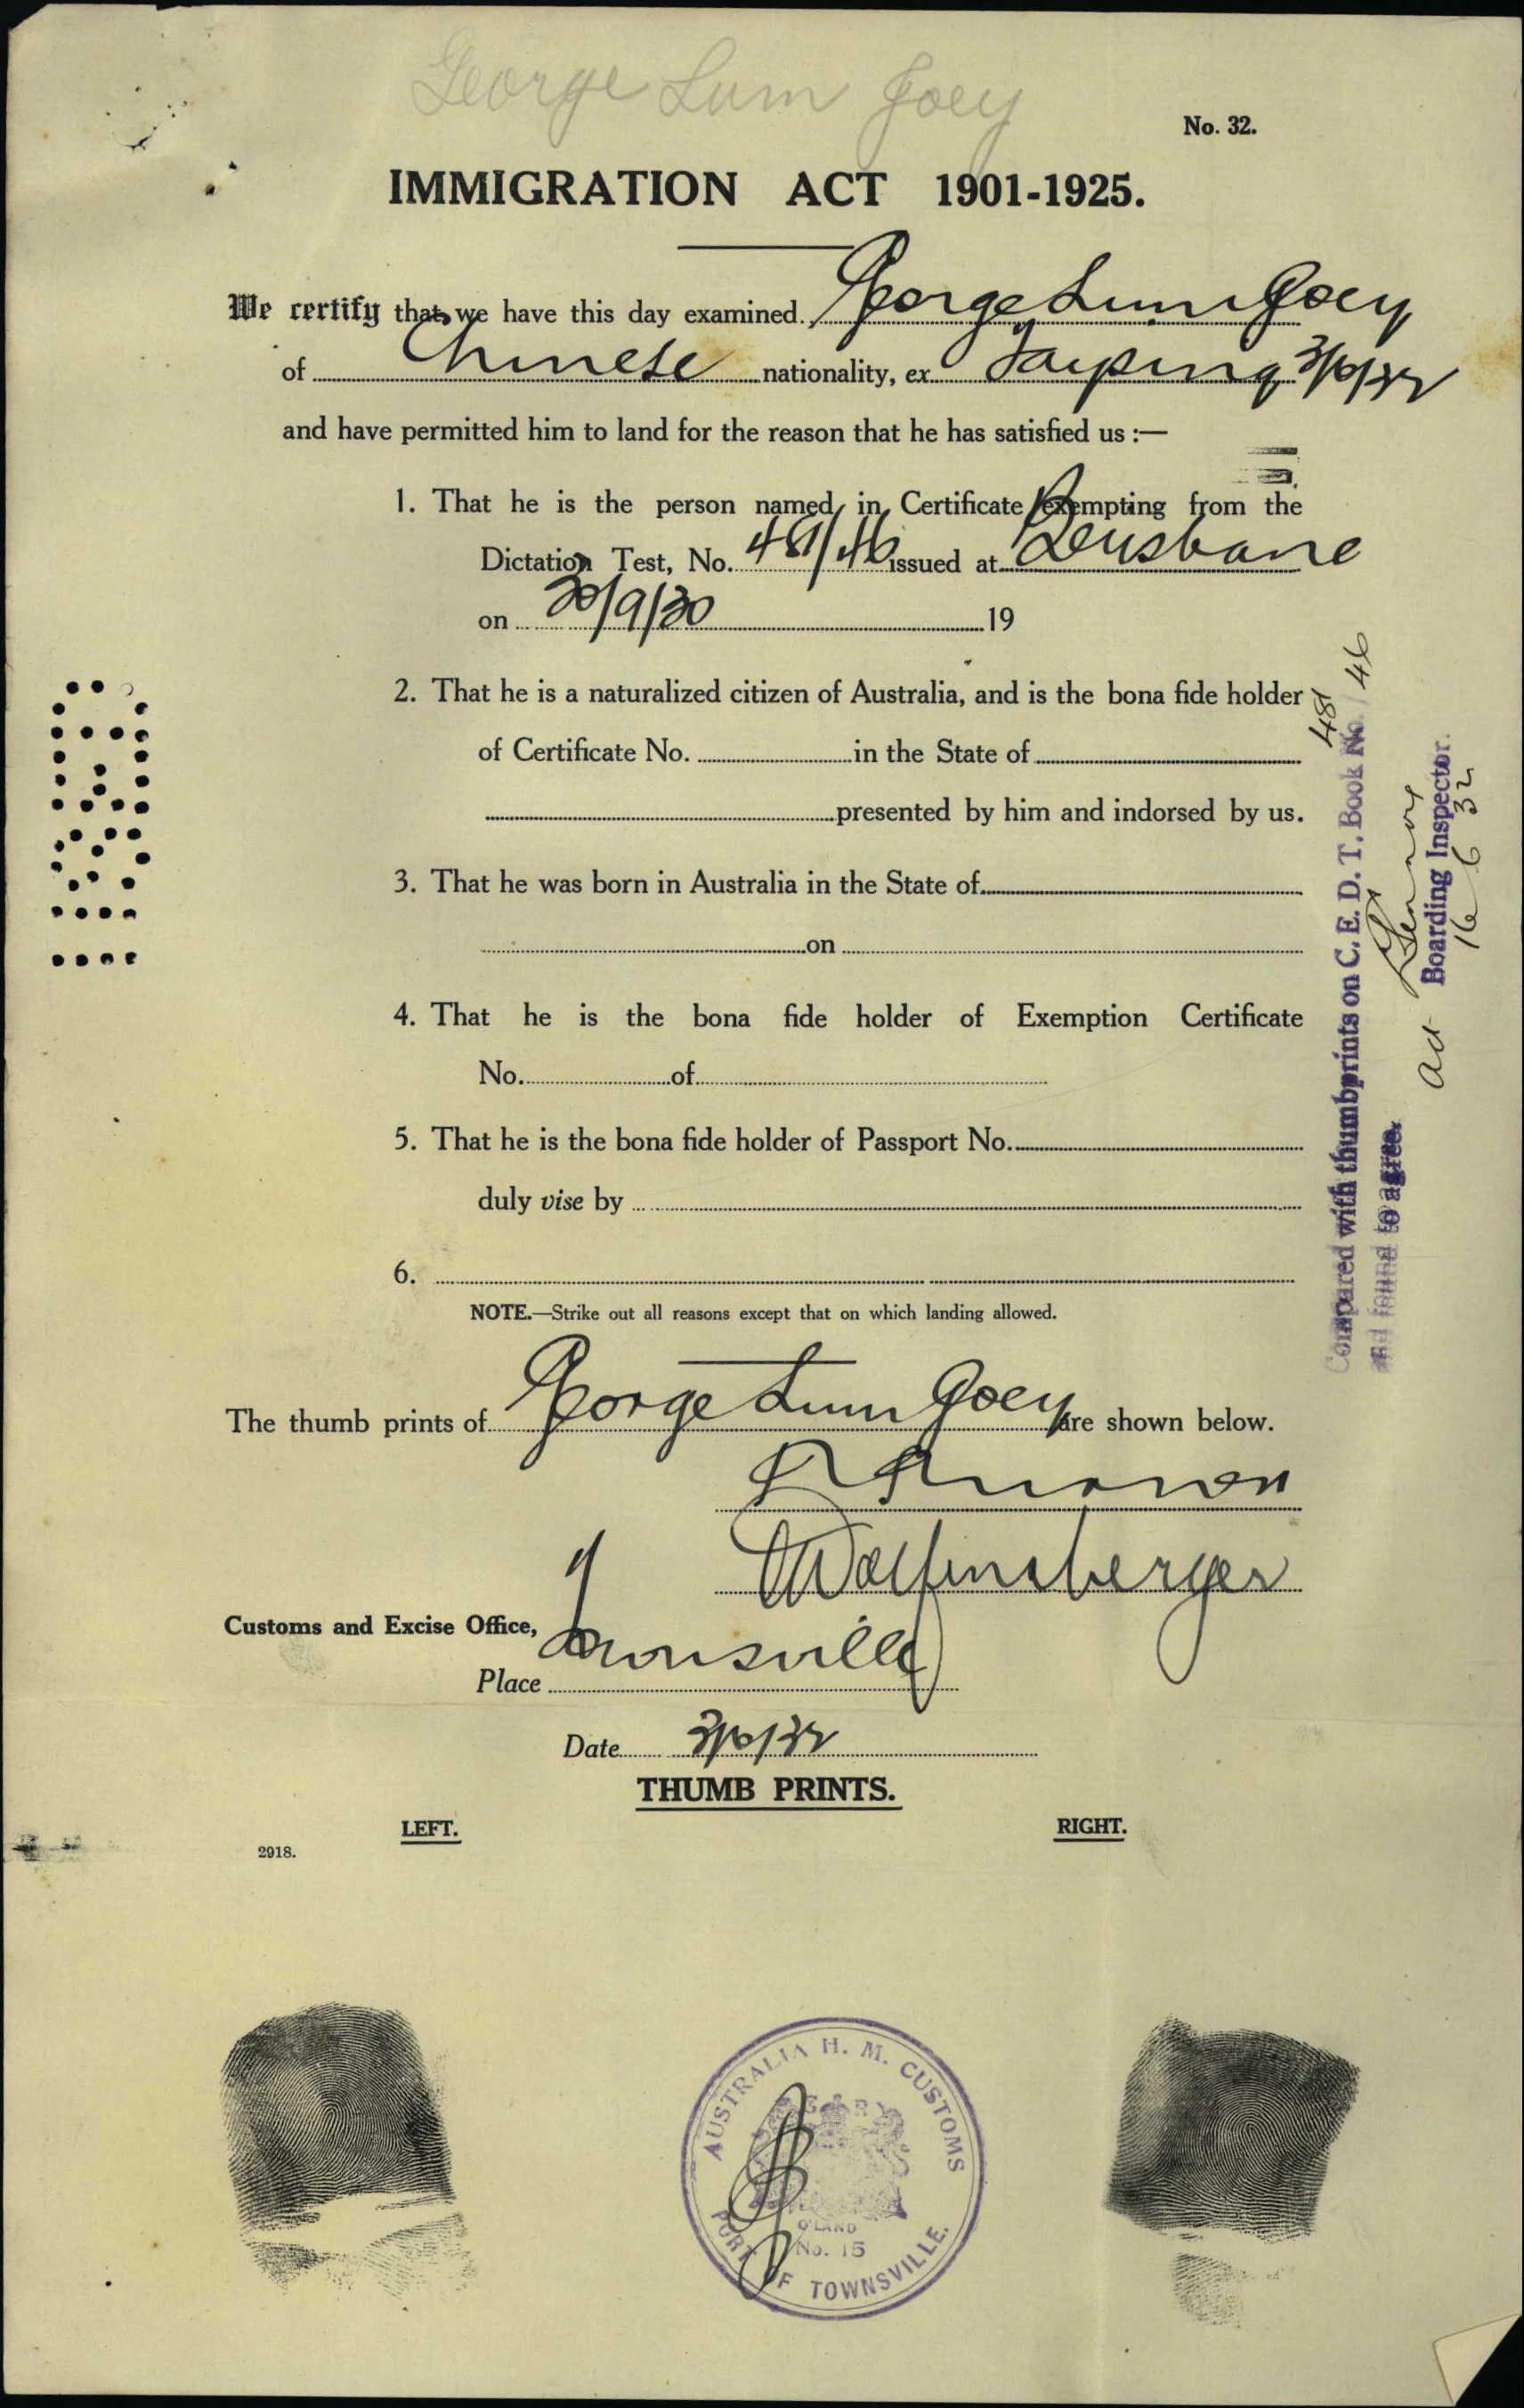 George Lum Joey
No. 32.
IMMIGRATION ACT 1901-1925.
We certify that we have this day examined George Lum Joey
of Chinese nationality, ex Taiping 3/6/32
and have permitted him to land for the reason that he has satisfied us :—
1. That he is the person named in Certificate exempting from the
Dictation Test, No. 481/46 issued at Brisbane
on 30/9/30 19
2. That he is a naturalized citizen of Australia, and is the bona fide holder
of Certificate No. in the State of
presented by him and indorsed by us.
3. That he was born in Australia in the State of
on
4. That he is the bona fide holder of Exemption Certificate
No. of
5. That he is the bona fide holder of Passport No.
duly vise by
6.
NOTE.—Strike out all reasons except that on which landing allowed.
The thumb prints of George Lum Joey are shown below.
Customs and Excise Office, Townsville
Place
Date 3/6/32
THUMB PRINTS.
LEFT.
RIGHT.
2918.
AUSTRALIA H. M. CUSTOMS
G R
Q'LAND
No. 15
PORT OF TOWNSVILLE.
Compared with thumbprints on C. E. D. T. Book No. 481/46
and found to agree.
Boarding Inspector.
16 6 32